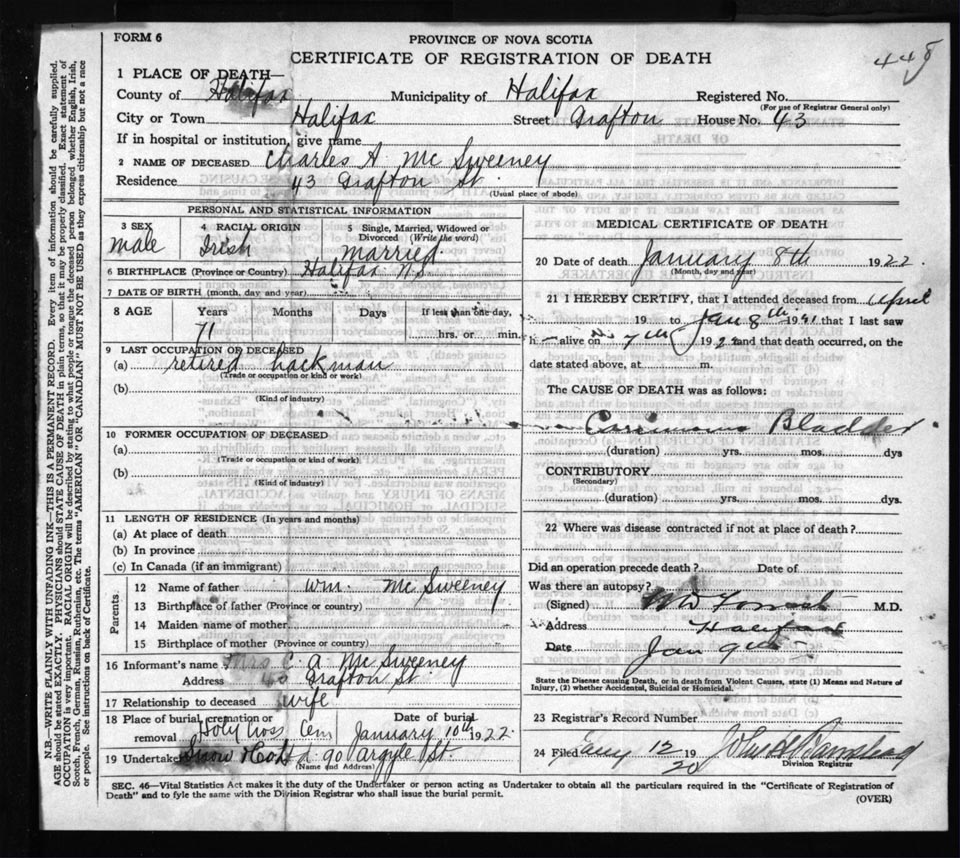 FORM 6
PROVINCE OF NOVA SCOTIA
CERTIFICATE OF REGISTRATION OF DEATH
448
1 PLACE OF DEATH—
County of Halifax Municipality of Halifax Registered No.
(For use of Registrar General only)
City or Town Halifax Street Grafton House No. 43
If in hospital or institution, give name
2 NAME OF DECEASED Charles A. McSweeney
Residence 43 Grafton St.
(Usual place of abode)
PERSONAL AND STATISTICAL INFORMATION
3 SEX
male
4 RACIAL ORIGIN
Irish
5 Single, Married, Widowed or
Divorced (Write the word)
married
6 BIRTHPLACE (Province or Country) Halifax N.S.
7 DATE OF BIRTH (month, day and year)
8 AGE Years Months Days If less than one day,
71 hrs. or min.
9 LAST OCCUPATION OF DECEASED
(a) retired hackman
(Trade or occupation or kind or work)
(b)
(Kind of industry)
10 FORMER OCCUPATION OF DECEASED
(a)
(Trade or occupation or kind of work)
(b)
(Kind of industry)
11 LENGTH OF RESIDENCE (In years and months)
(a) At place of death
(b) In province
(c) In Canada (if an immigrant)
Parents
12 Name of father Wm. McSweeney
13 Birthplace of father (Province or country)
14 Maiden name of mother
15 Birthplace of mother (Province or country)
16 Informant's name Mrs C. A McSweeney
Address Grafton St.
17 Relationship to deceased wife
18 Place of burial, cremation or
removal Holy Cross Cem
Date of burial
January 10th 1922
19 Undertaker Snow 90 Argyle St.
(Name and Address)
MEDICAL CERTIFICATE OF DEATH
20 Date of death January 8th 1922.
(Month, day and year)
21 I HEREBY CERTIFY, that I attended deceased from April
19 to Jan 8th 19 that I last saw
h alive on 7th 1922 and that death occurred, on the
date stated above, at m.
The CAUSE OF DEATH was as follows:
Bladder
(duration) yrs. mos. dys
CONTRIBUTORY
(Secondary)
(duration) yrs. mos. dys.
22 Where was disease contracted if not at place of death?
Did an operation precede death? Date of
Was there an autopsy?
(Signed) M.D.
Address Halifax
Date Jan 9th
State the Disease causing Death, or in death from Violent Causes, state (1) Means and Nature of
Injury, (2) whether Accidental, Suicidal or Homicidal.
23 Registrar's Record Number
24 Filed 12 19
20
Division Registrar
SEC. 46—Vital Statistics Act makes it the duty of the Undertaker or person acting as Undertaker to obtain all the particulars required in the "Certificate of Registration of
Death" and to fyle the same with the Division Registrar who shall issue the burial permit.
(OVER)
N.B.—WRITE PLAINLY WITH UNFADING INK—THIS IS A PERMANENT RECORD. Every item of information should be carefully supplied.
AGE should be stated EXACTLY. PHYSICIANS should STATE CAUSE OF DEATH in plain terms, so that it may be properly classified. Exact statement of
OCCUPATION is very important. RACIAL ORIGIN will be described by stating to what people or tongue the deceased person belonged whether English, Irish,
Scotch, French, German, Russian, Ruthenian, etc. The terms "AMERICAN" OR "CANADIAN" MUST NOT BE USED as they express citizenship but not a race
or people. See instructions on back of Certificate.